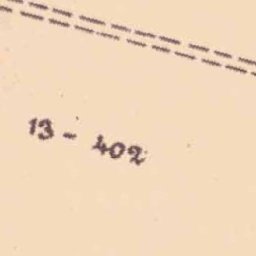 13 - 402